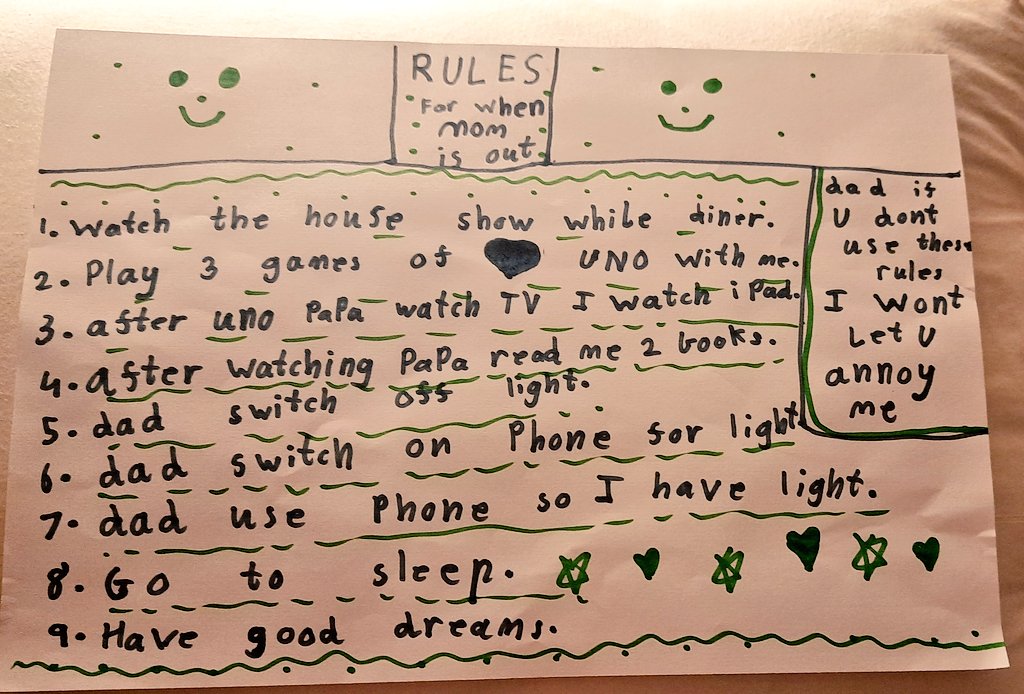 RULES
For when
mom
is out
1. Watch the house show while diner.
2. Play 3 games of UNO with me.
3. after uno PaPa watch TV I watch iPad.
4. after watching PaPa read me 2 books.
5. dad switch off light.
6. dad switch on Phone for light
7. dad use Phone so I have light.
8. Go to sleep.
9. Have good dreams.
dad if
U dont
use these
rules
I wont
Let U
annoy
me